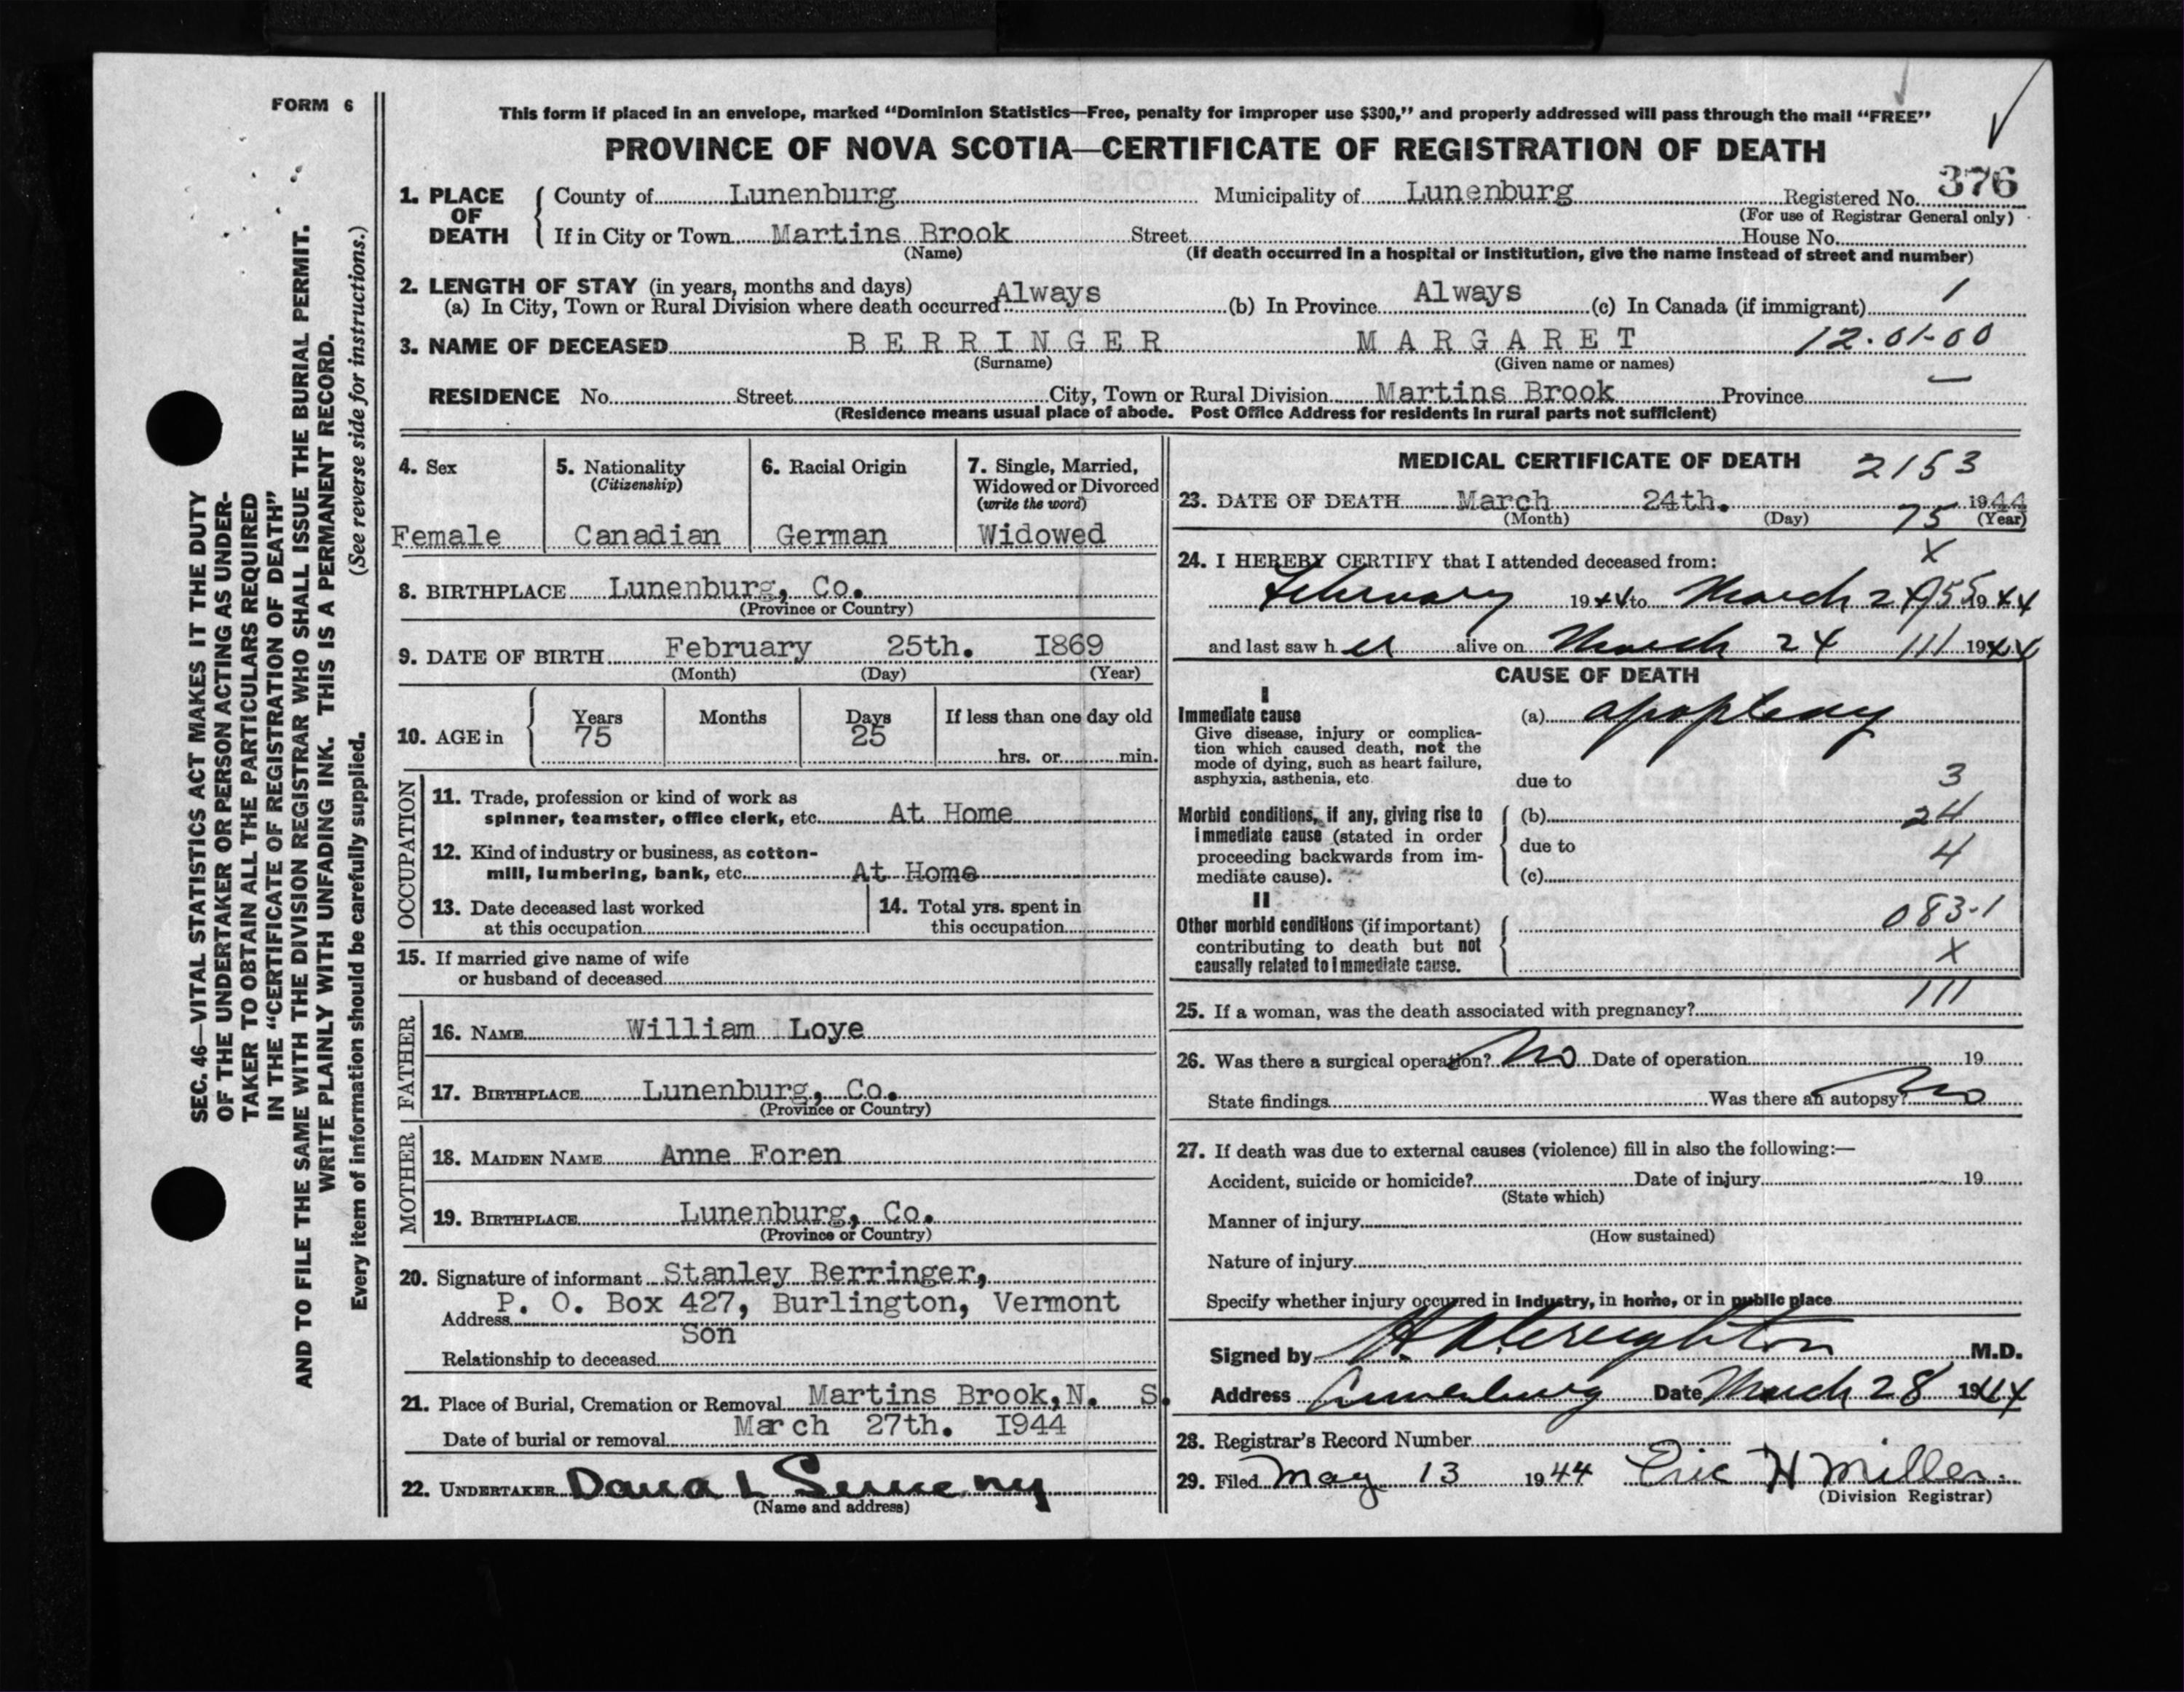 FORM 6
This form if placed in an envelope, marked “Dominion Statistics—Free, penalty for improper use $300,” and properly addressed will pass through the mail “FREE”
PROVINCE OF NOVA SCOTIA—CERTIFICATE OF REGISTRATION OF DEATH
SEC. 46—VITAL STATISTICS ACT MAKES IT THE DUTY
OF THE UNDERTAKER OR PERSON ACTING AS UNDER-
TAKER TO OBTAIN ALL THE PARTICULARS REQUIRED
IN THE “CERTIFICATE OF REGISTRATION OF DEATH”
AND TO FILE THE SAME WITH THE DIVISION REGISTRAR WHO SHALL ISSUE THE BURIAL PERMIT.
WRITE PLAINLY WITH UNFADING INK. THIS IS A PERMANENT RECORD.
Every item of information should be carefully supplied. (See reverse side for instructions.)
1. PLACE OF DEATH County of Lunenburg Municipality of Lunenburg Registered No. 376
(For use of Registrar General only)
If in City or Town Martins Brook Street House No.
(Name) (If death occurred in a hospital or institution, give the name instead of street and number)
2. LENGTH OF STAY (in years, months and days)
(a) In City, Town or Rural Division where death occurred Always (b) In Province Always (c) In Canada (if immigrant) 1
3. NAME OF DECEASED BERRINGER MARGARET 12-01-00
(Surname) (Given name or names)
RESIDENCE No. Street City, Town or Rural Division Martins Brook Province —
(Residence means usual place of abode. Post Office Address for residents in rural parts not sufficient)
4. Sex
Female
5. Nationality
(Citizenship)
Canadian
6. Racial Origin
German
7. Single, Married,
Widowed or Divorced
(write the word)
Widowed
8. BIRTHPLACE Lunenburg, Co.
(Province or Country)
9. DATE OF BIRTH February 25th. I869
(Month) (Day) (Year)
10. AGE in Years Months Days If less than one day old
75 25 hrs. or min.
OCCUPATION
11. Trade, profession or kind of work as
spinner, teamster, office clerk, etc. At Home
12. Kind of industry or business, as cotton-
mill, lumbering, bank, etc. At Home
13. Date deceased last worked
at this occupation
14. Total yrs. spent in
this occupation
15. If married give name of wife
or husband of deceased
FATHER
16. NAME William Loye
17. BIRTHPLACE Lunenburg, Co.
(Province or Country)
MOTHER
18. MAIDEN NAME Anne Foren
19. BIRTHPLACE Lunenburg, Co.
(Province or Country)
20. Signature of informant Stanley Berringer,
Address P. O. Box 427, Burlington, Vermont
Son
Relationship to deceased
21. Place of Burial, Cremation or Removal Martins Brook, N. S.
Date of burial or removal March 27th. I944
22. UNDERTAKER
(Name and address)
MEDICAL CERTIFICATE OF DEATH 2153
23. DATE OF DEATH March 24th. 1944
(Month) (Day) 75 (Year)
24. I HEREBY CERTIFY that I attended deceased from: X
February 1944 to March 24 1944
and last saw h er alive on March 24 111 1944
CAUSE OF DEATH
I
Immediate cause
Give disease, injury or complica-
tion which caused death, not the
mode of dying, such as heart failure,
asphyxia, asthenia, etc.
(a) apoplexy
due to 3
Morbid conditions, if any, giving rise to
immediate cause (stated in order
proceeding backwards from im-
mediate cause).
(b) 24
due to 4
(c)
II
Other morbid conditions (if important)
contributing to death but not
causally related to immediate cause.
083-1
X
25. If a woman, was the death associated with pregnancy? 111
26. Was there a surgical operation? No Date of operation 19
State findings Was there an autopsy? No
27. If death was due to external causes (violence) fill in also the following:—
Accident, suicide or homicide? Date of injury 19
(State which)
Manner of injury
(How sustained)
Nature of injury
Specify whether injury occurred in industry, in home, or in public place
Signed by Creighton M.D.
Address Lunenburg Date March 28 1944
28. Registrar's Record Number
29. Filed May 13 1944 Eric H Miller.
(Division Registrar)